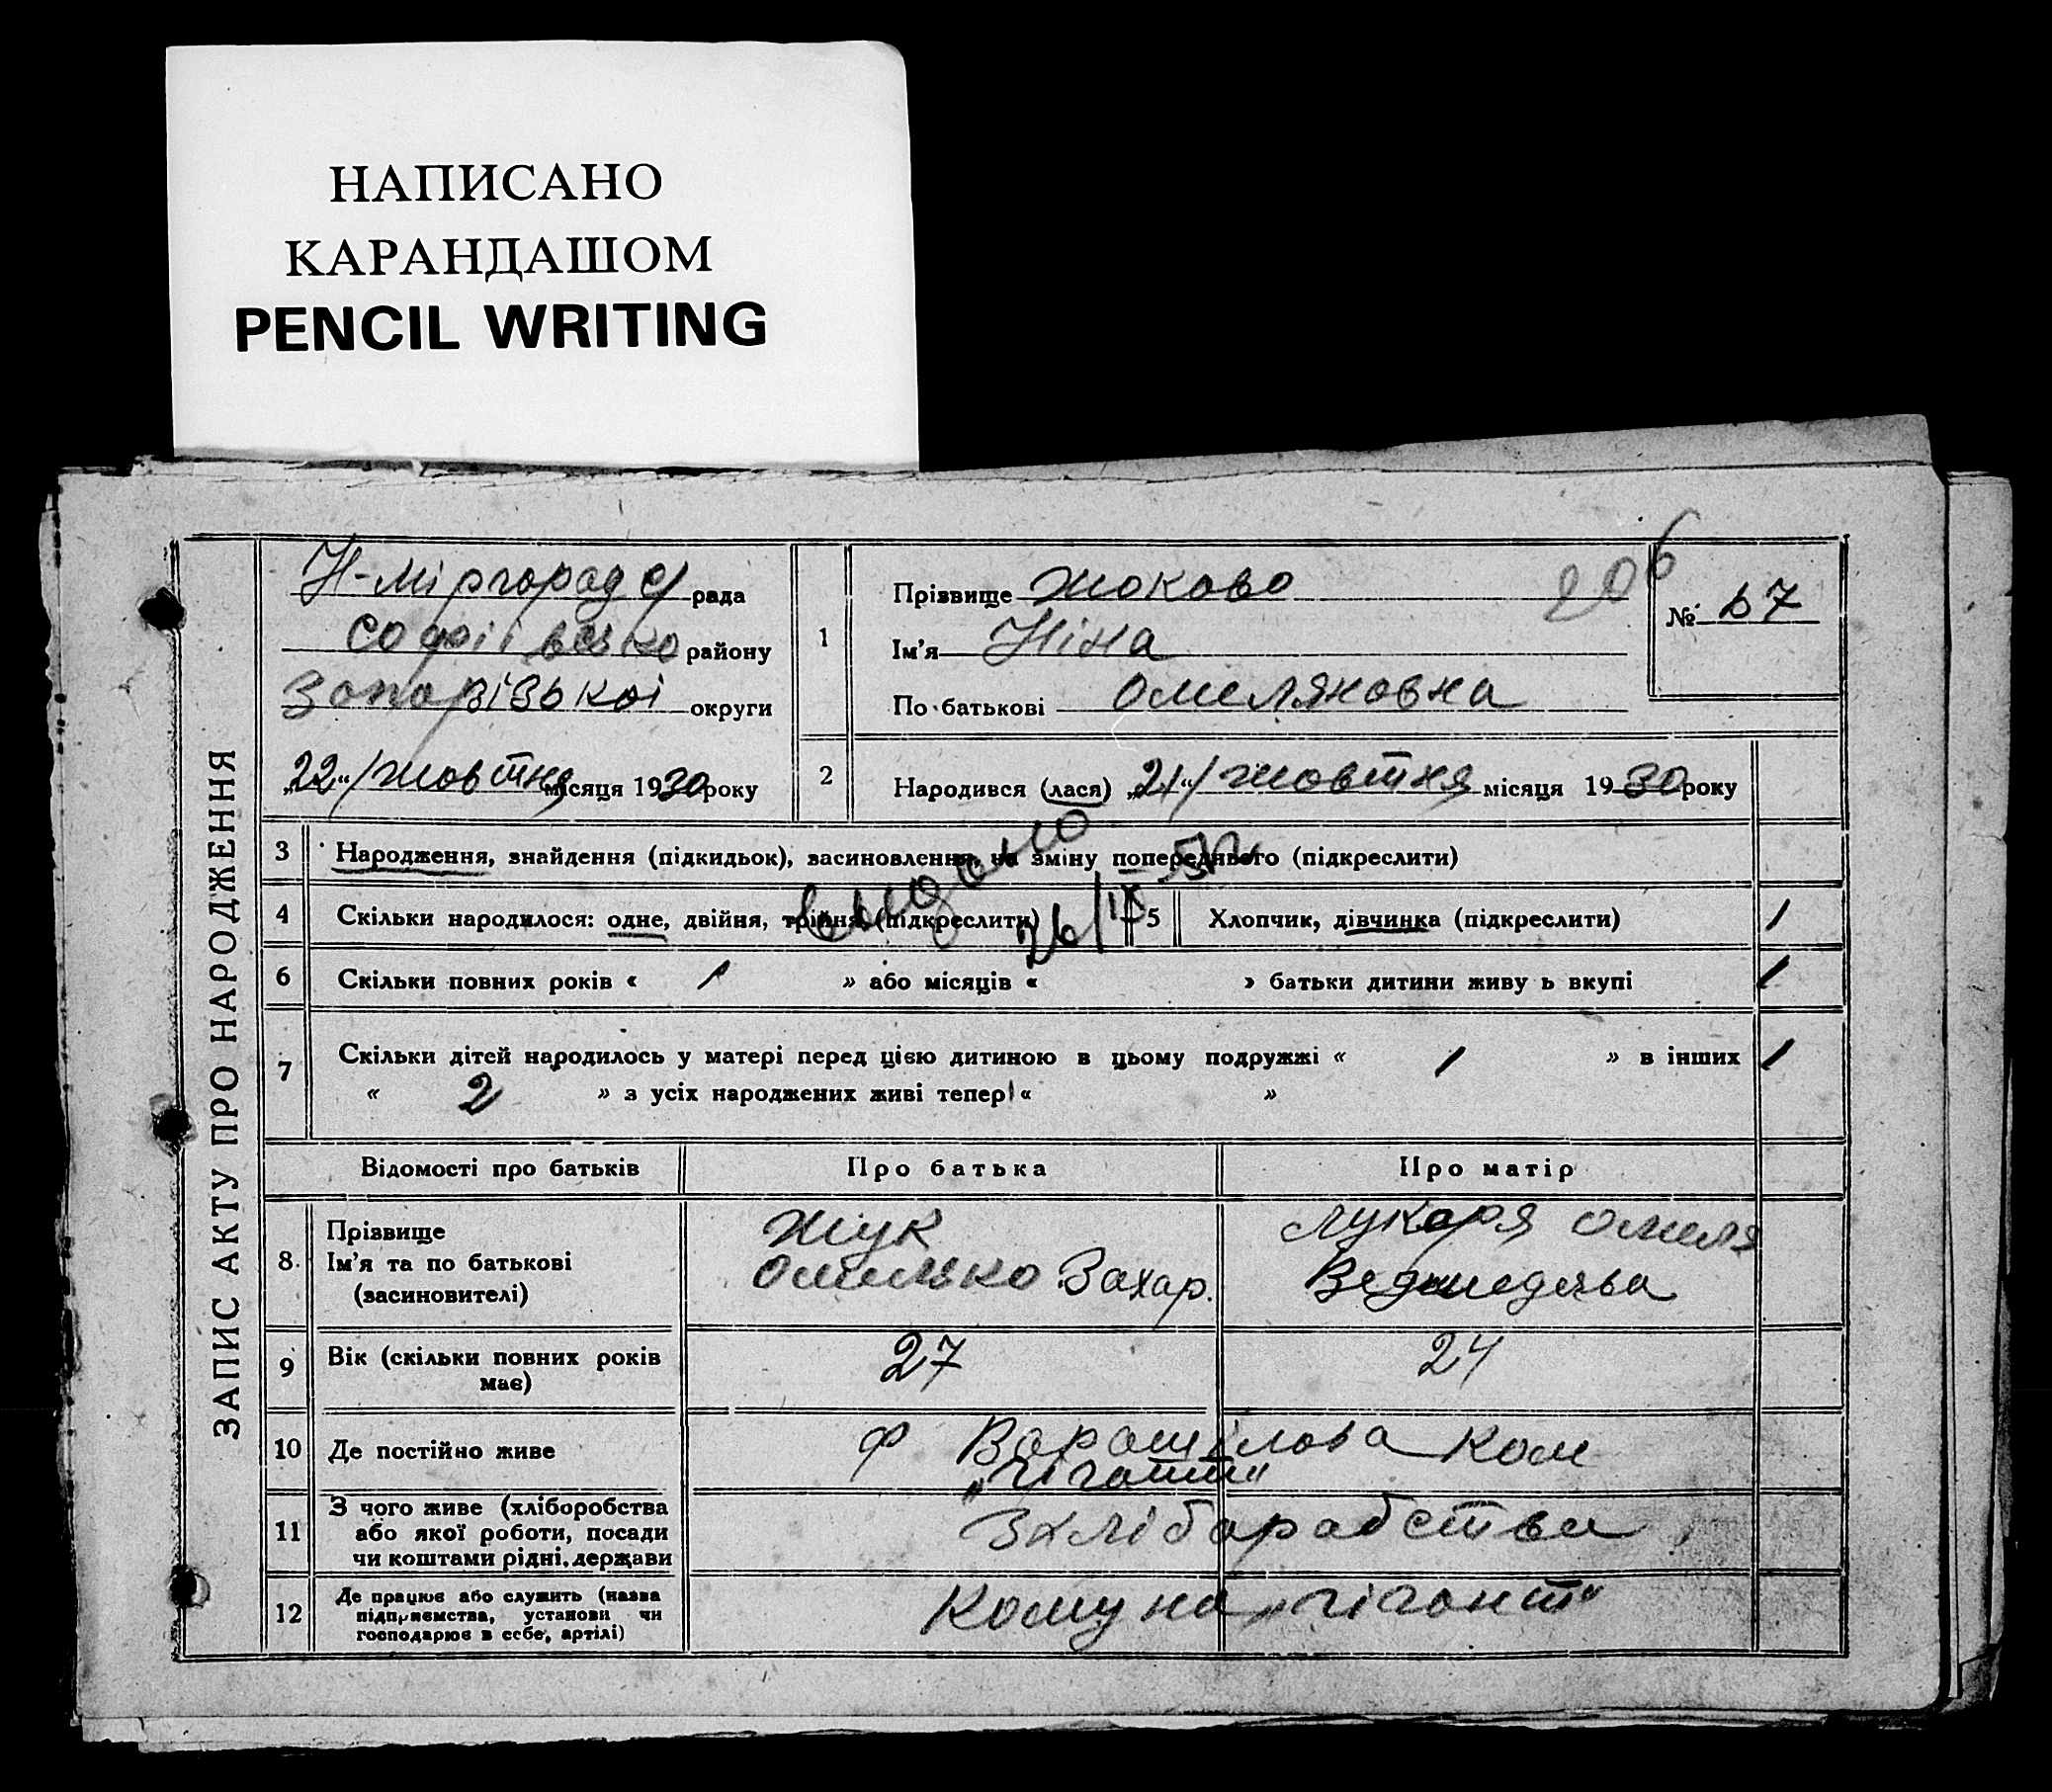 НАПИСАНО
КАРАНДАШОМ
PENCIL WRITING
ЗАПИС АКТУ ПРО НАРОДЖЕННЯ
Н-Міргород с/ рада
Софіївсько району
Запорізької округи
„22“/жовтня місяця 1930 року
1
Прізвище Жокова
Ім'я Ніна
По батькові Омеляновна
206
№ 67
2
Народився (лася) „21“/жовтня місяця 1930 року
3 Народження, знайдення (підкидьок), засиновлення, на зміну попереднього (підкреслити)
4 Скільки народилося: одне, двійня, трійня (підкреслити) 5 Хлопчик, дівчинка (підкреслити) 1
26/IX 52
6 Скільки повних років « 1 » або місяців « » батьки дитини живуть вкупі 1
7 Скільки дітей народилось у матері перед цією дитиною в цьому подружжі « 1 » в інших 1
« 2 » з усіх народжених живі тепер « »
Відомості про батьків Про батька Про матір
8. Прізвище
Ім'я та по батькові
(засиновителі)
Жук
Омелько Захар.
Лукаря Омеля
Ведмедєва
9 Вік (скільки повних років
має)
27 24
10 Де постійно живе ф Варошілова ком
„гігант“
11 З чого живе (хліборобства
або якої роботи, посади
чи коштами рідні, держави
З хлібарабства
12 Де працює або служить (назва
підприємства, установи чи
господарює в себе, артілі)
Комуна „гігант“